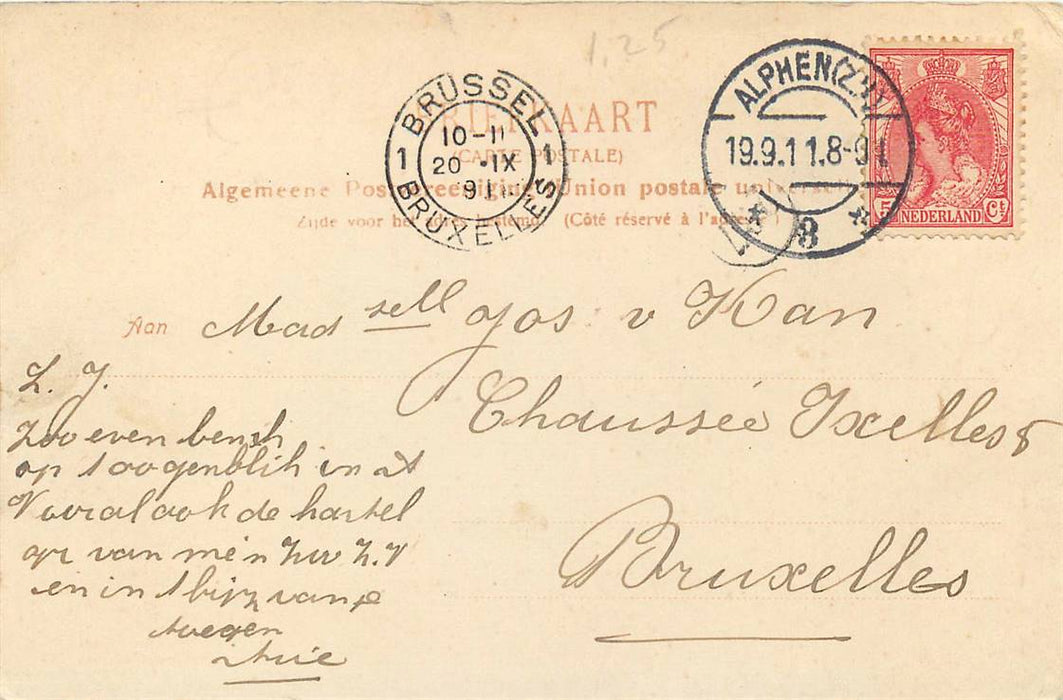 1,25
BRIEFKAART
(CARTE POSTALE)
Algemeene Postvereeniging Union postale universelle
Zijde voor het adres bestemd. (Côté réservé à l'adresse)
BRUSSEL
1 1
10-11
20 IX
191
BRUXELLES
ALPHEN(Z.H)
19.9.11.8-9
8
5 NEDERLAND Ct
Aan Mad sell Jos v Kan
Chaussée Ixelles 8
Bruxelles
L. J.
Zoo even ben ik
op 1 oogenblik in
Vooral ook de hartel
gr van m'en
en in 1 van